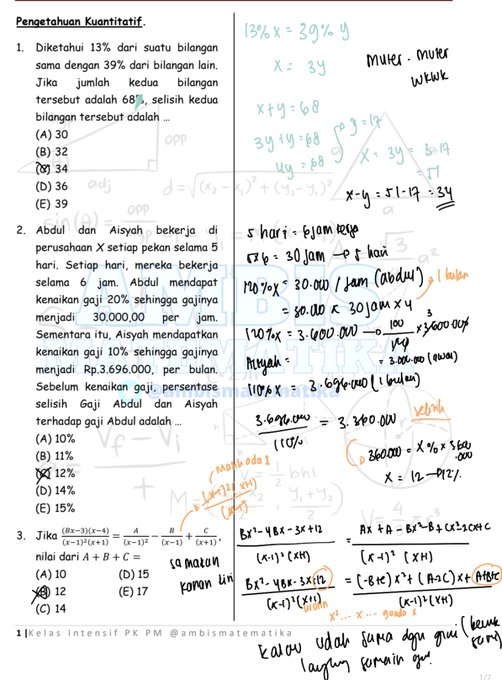 Pengetahuan Kuantitatif.
1. Diketahui 13% dari suatu bilangan
sama dengan 39% dari bilangan lain.
Jika jumlah kedua bilangan
tersebut adalah 68%, selisih kedua
bilangan tersebut adalah ...
(A) 30
(B) 32
(C) 34
(D) 36
(E) 39
13% x = 39% y
x = 3y
x+y = 68
3y+y = 68
4y = 68
y = 17
x = 3y = 3×17
= 51
x-y = 51-17 = 34
muter-muter
wkwk
2. Abdul dan Aisyah bekerja di
perusahaan X setiap pekan selama 5
hari. Setiap hari, mereka bekerja
selama 6 jam. Abdul mendapat
kenaikan gaji 20% sehingga gajinya
menjadi 30.000,00 per jam.
Sementara itu, Aisyah mendapatkan
kenaikan gaji 10% sehingga gajinya
menjadi Rp.3.696.000, per bulan.
Sebelum kenaikan gaji, persentase
selisih Gaji Abdul dan Aisyah
terhadap gaji Abdul adalah ...
(A) 10%
(B) 11%
(C) 12%
(D) 14%
(E) 15%
5 hari = 6 jam kerja
5×6 = 30 jam → 5 hari
120% x = 30.000 / jam (abdul)
1 bulan
= 30.000 × 30 jam × 4
120% x = 3.600.000
= 3.000.000 (awal)
Aisyah =
110% x = 3.696.000 (1 bulan)
3.696.000 / 110% = 3.360.000
selisih
360.000 = x% × 3.000.000
x = 12 → 12%
3. Jika (Bx−3)(x−4) / (x−1)²(x+1) = A / (x−1)² − B / (x−1) + C / (x+1),
nilai dari A + B + C =
(A) 10 (D) 15
(B) 12 (E) 17
(C) 14
samakan
kanan kiri
Bx²-4Bx-3x+12 / (x-1)²(x+1) = Ax+A-Bx²+B+Cx²-2Cx+C / (x-1)²(x+1)
kalau udah sama dgn gini (bentuk
langsung samain
1 |Kelas Intensif PK PM @ambismatematika
AMBIS
MATEMATIKA
@ambismatematika
1/2